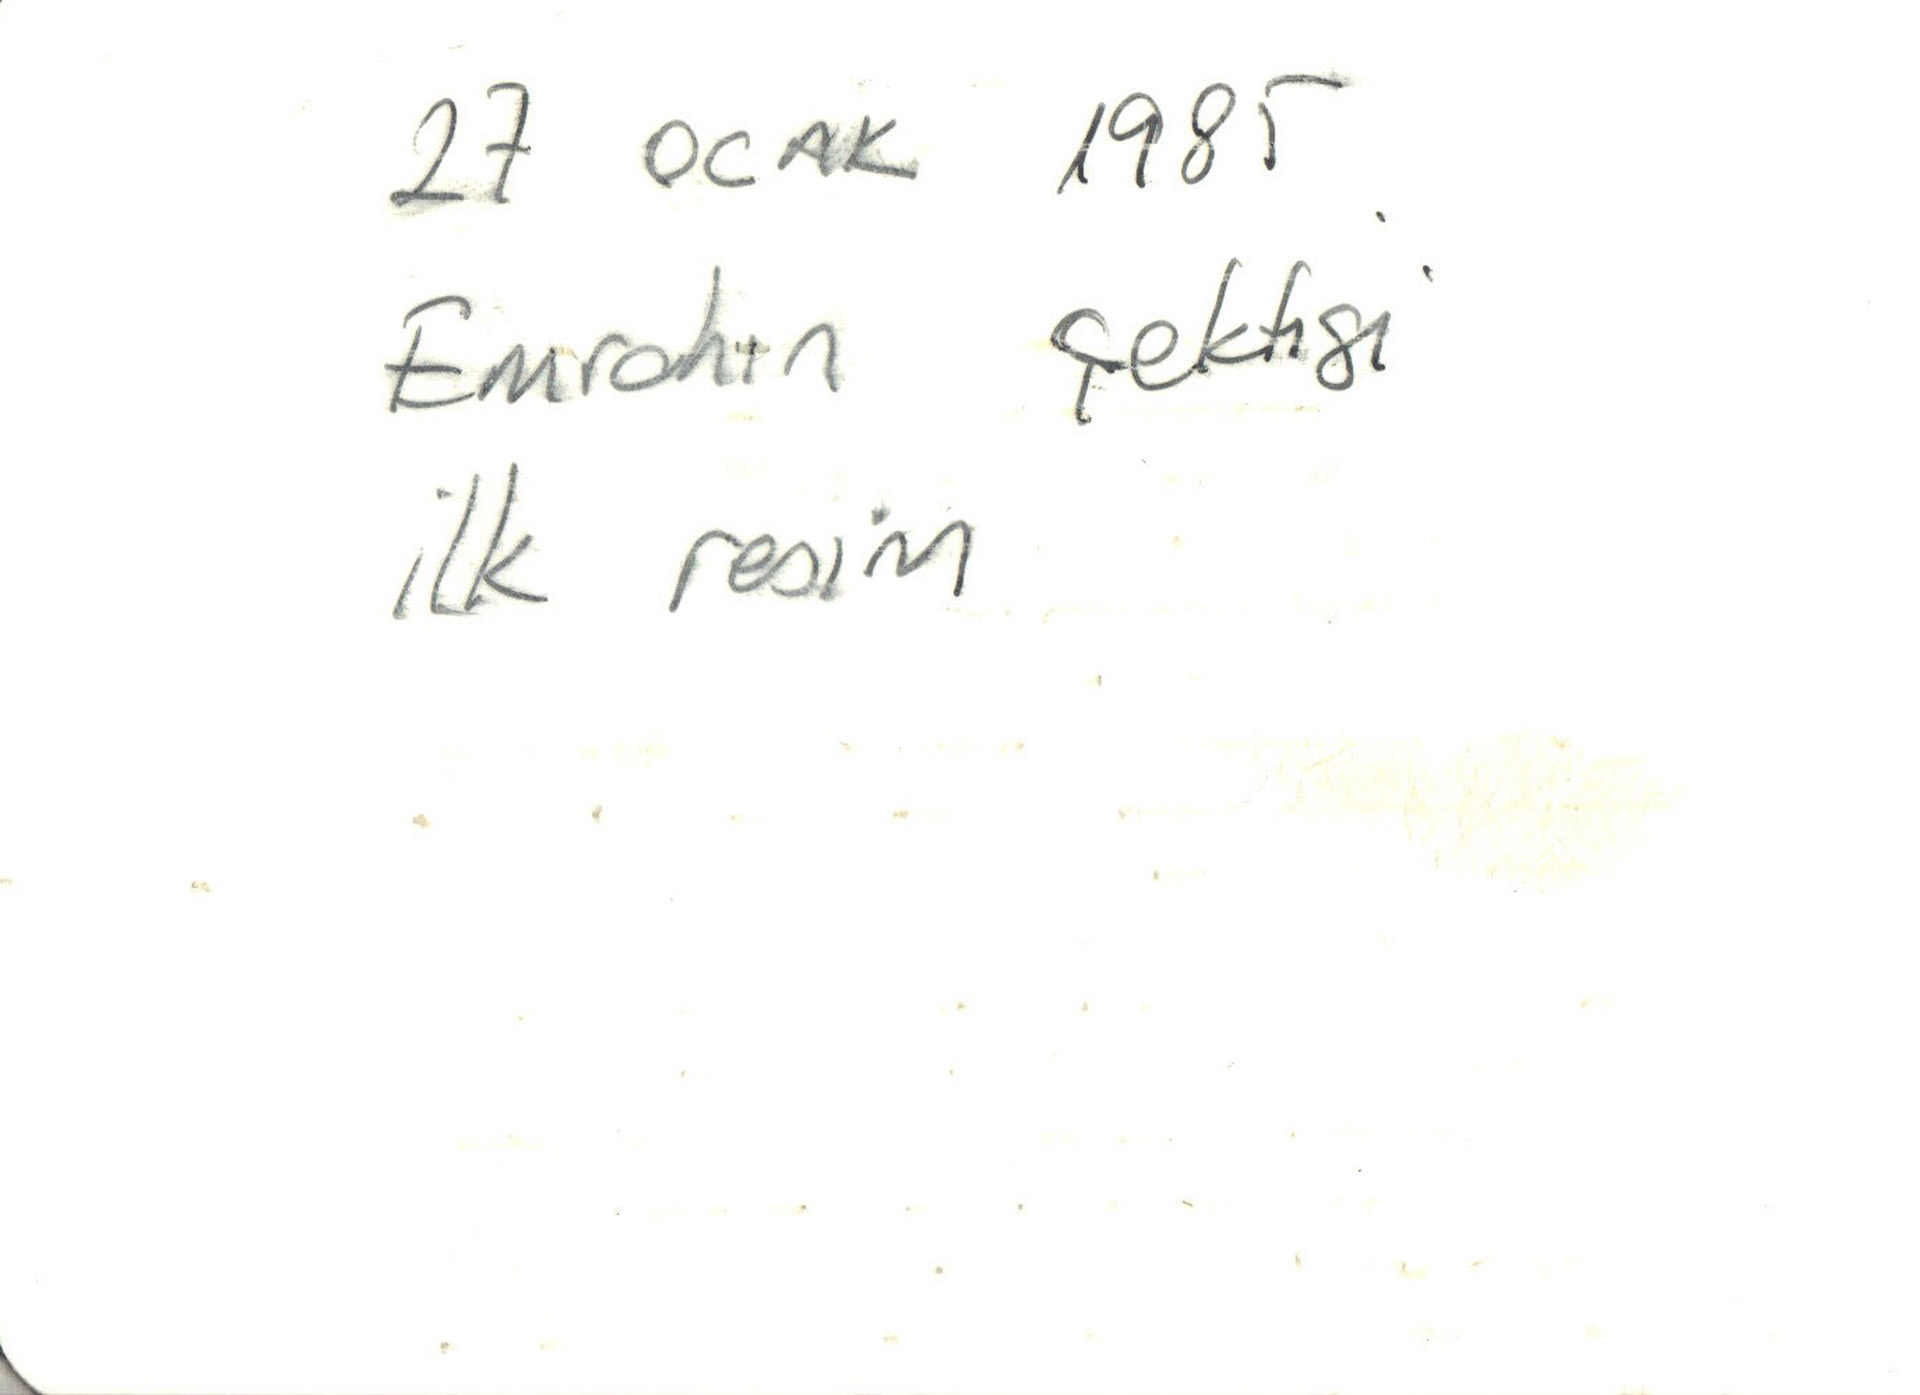 27 OCAK 1985
Emrahın çektiği
ilk resim